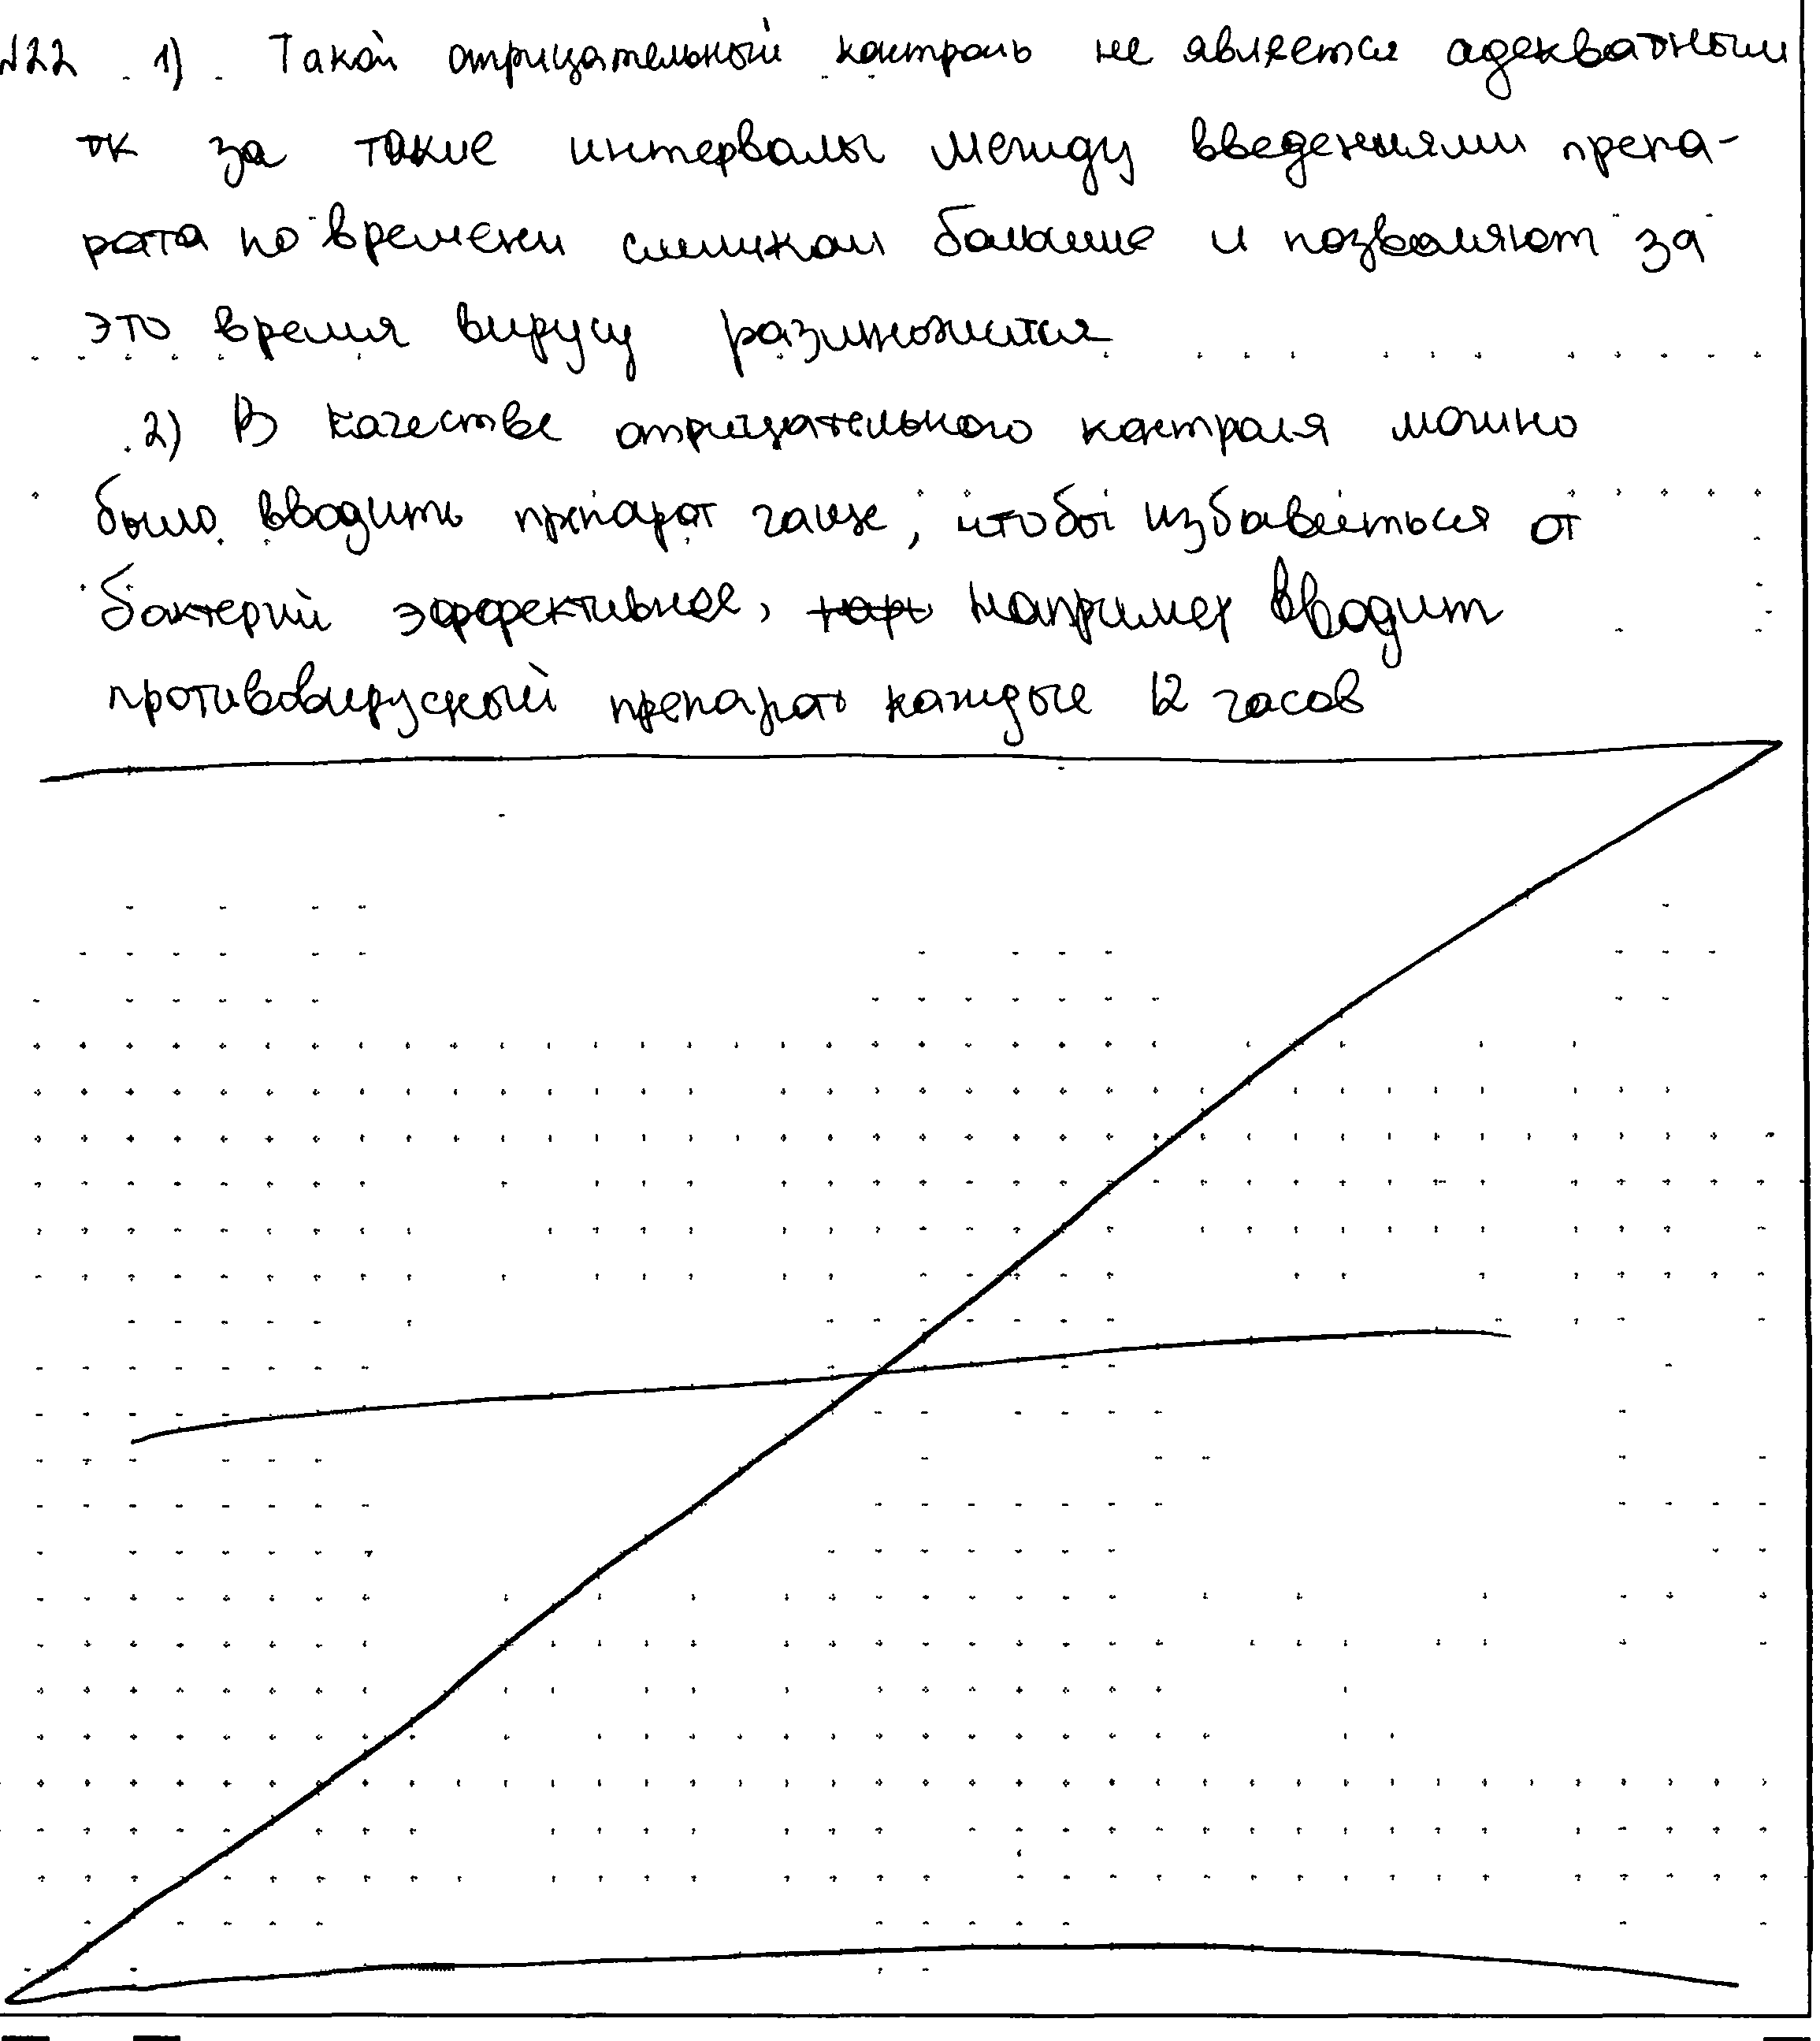 №22 1) Такой отрицательный контроль не является адекватным
тк за такие интервалы между введениями препа-
рата по времени слишком большие и позволяют за
это время вирусу размножится
2) В качестве отрицательного контроля можно
было вводить препарат чаще, чтобы избавиться от
бактерий эффективнее, например вводит
противовирусный препарат каждые 12 часов